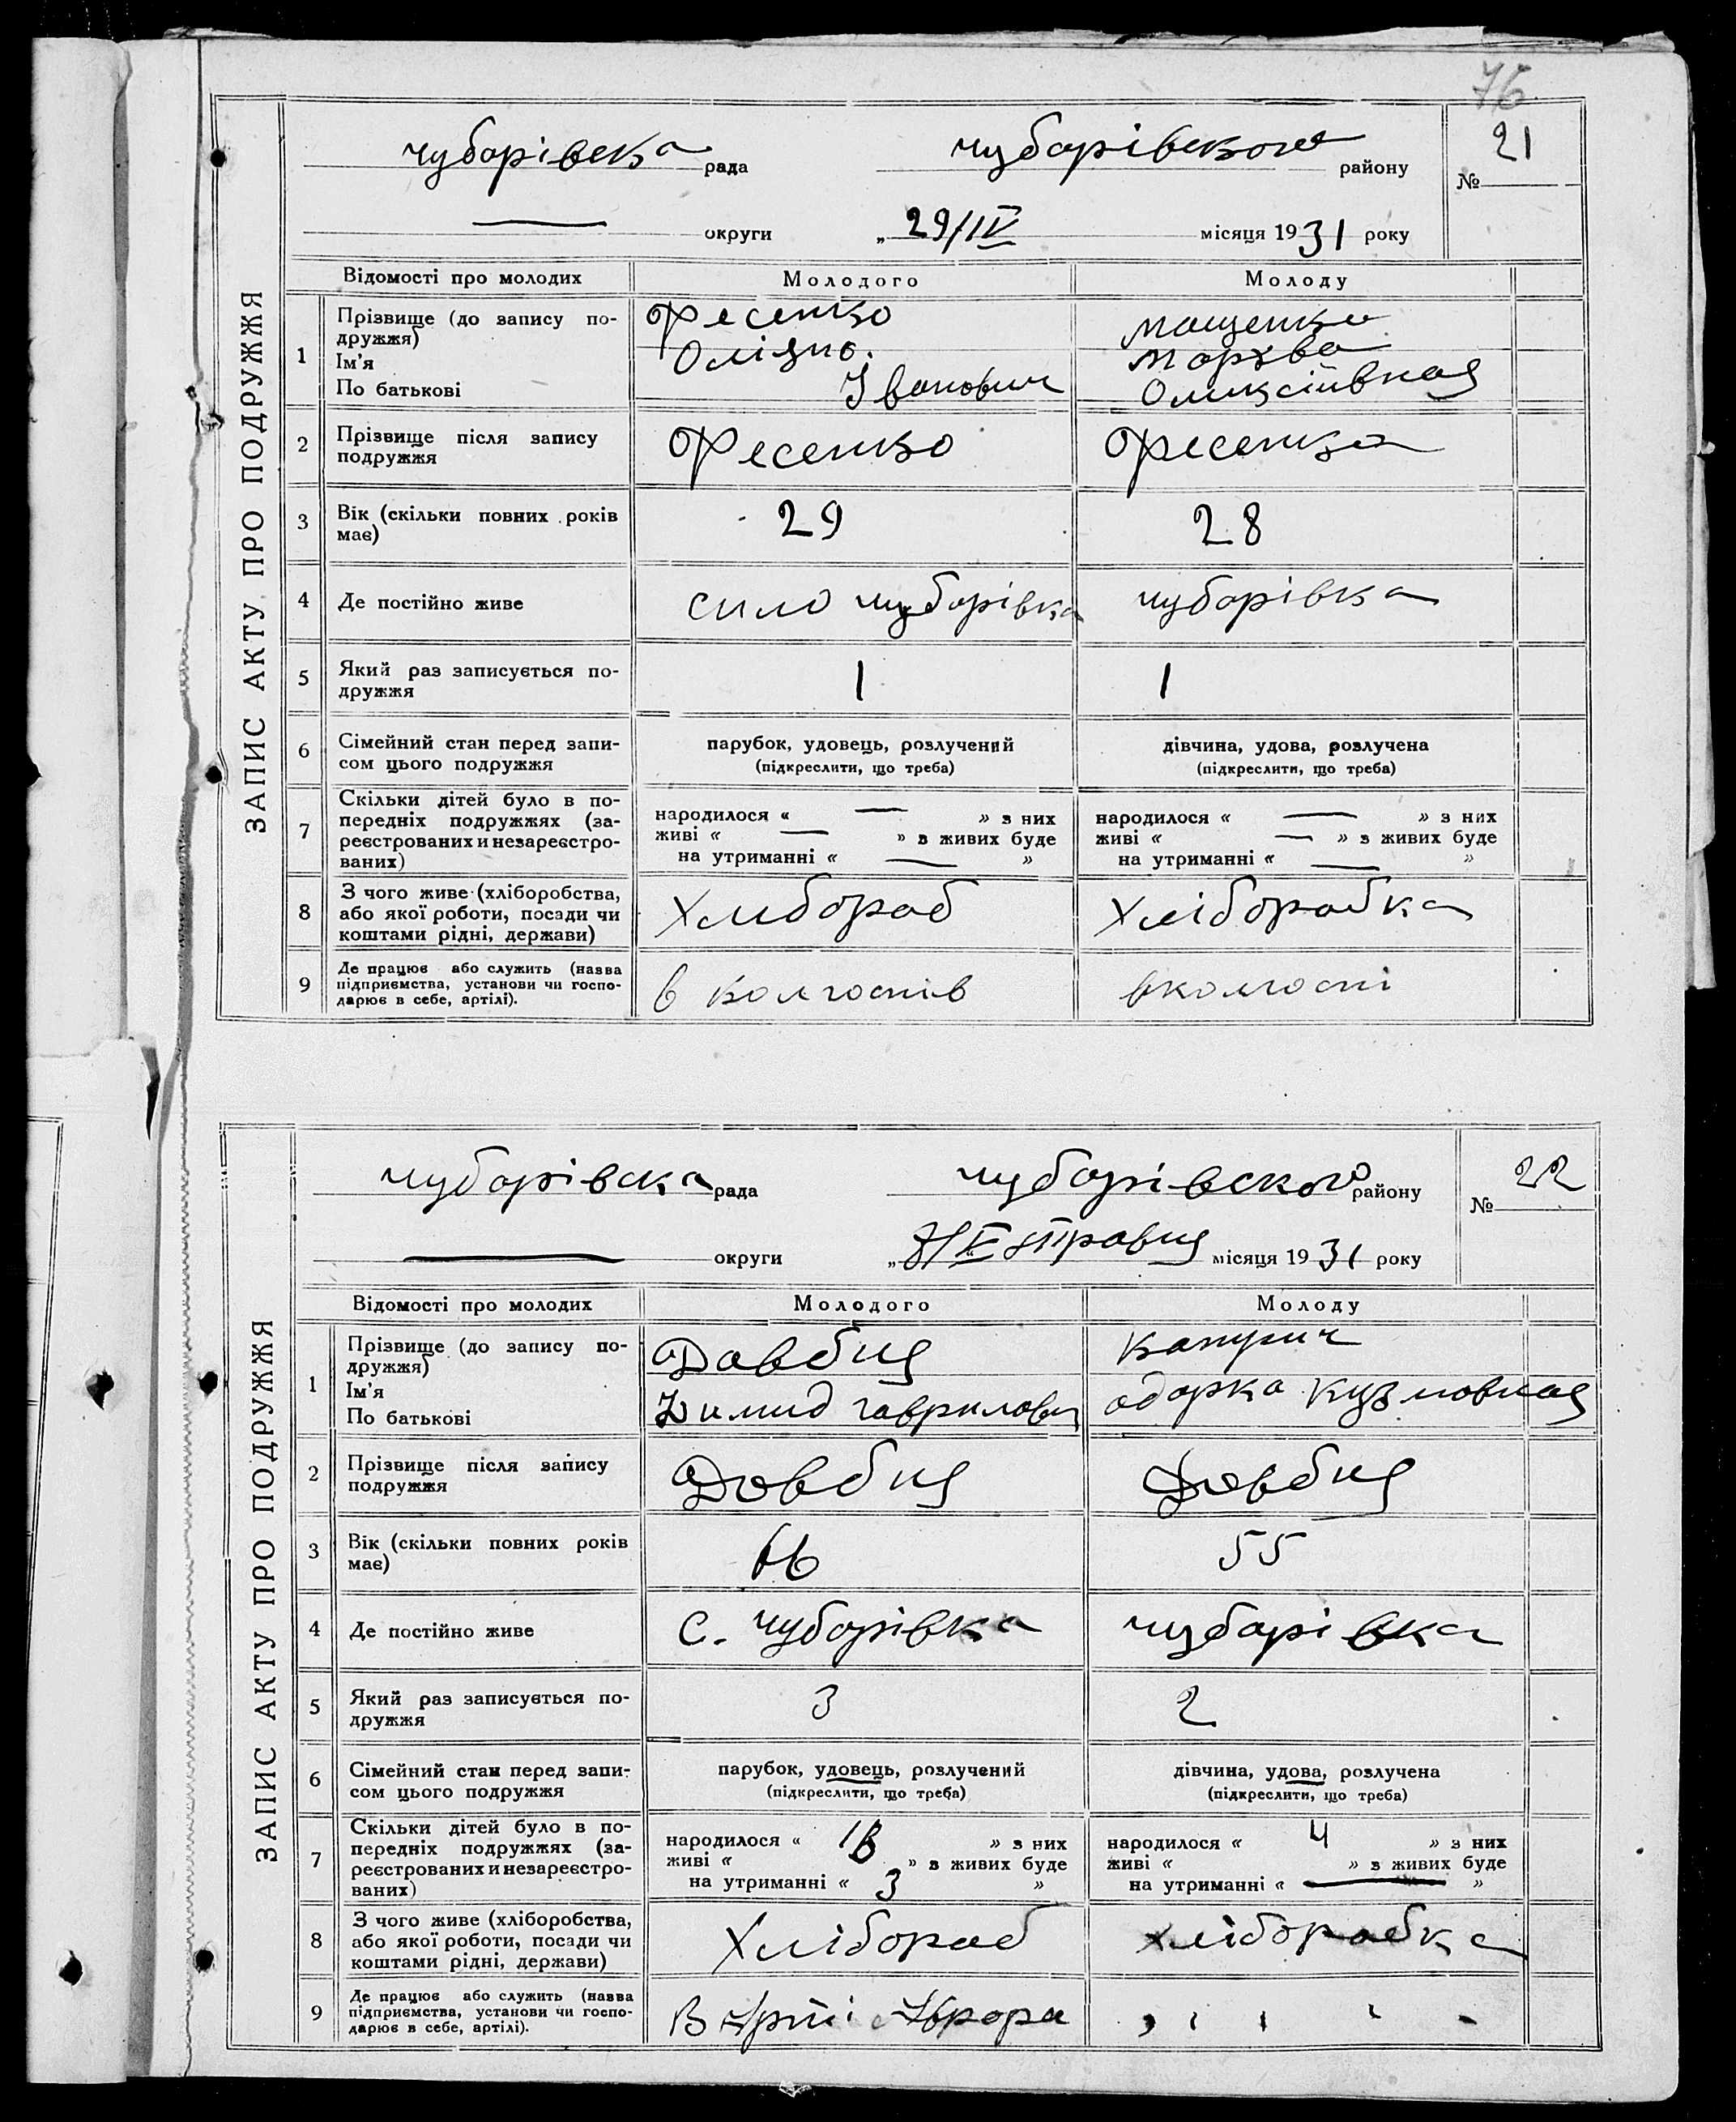 76
ЗАПИС АКТУ ПРО ПОДРУЖЖЯ
чуборівска рада чуборівского району № 21
округи „29/IV місяця 1931 року
Відомості про молодих Молодого Молоду
1 Прізвище (до запису по-
дружжя)
Ім'я
По батькові
Фесенко
Іванович
мащенко
мархва
Оликсіивная
2 Прізвище після запису
подружжя
Фесенко Фесенка
3 Вік (скільки повних років
має)
29 28
4 Де постійно живе сило чуборівка чуборівка
5 Який раз записується по-
дружжя
1 1
6 Сімейний стан перед запи-
сом цього подружжя
парубок, удовець, розлучений
(підкреслити, що треба)
дівчина, удова, розлучена
(підкреслити, що треба)
7 Скільки дітей було в по-
передніх подружжях (за-
реєстрованих и незареєстро-
ваних)
народилося « — » з них
живі « — » з живих буде
на утриманні « — »
народилося « — » з них
живі « — » з живих буде
на утриманні « — »
8 З чого живе (хліборобства,
або якої роботи, посади чи
коштами рідні, держави)
Хлибораб Хліборабка
9 Де працює або служить (назва
підприємства, установи чи госпо-
дарює в себе, артілі).
в колгоспів вколгоспі
ЗАПИС АКТУ ПРО ПОДРУЖЖЯ
чуборівска рада чуборівского району № 22
округи „ травня місяця 1931 року
Відомості про молодих Молодого Молоду
1 Прізвище (до запису по-
дружжя)
Ім'я
По батькові
Довбня
Димид гаврилович
Капурин
одорка Кузмовная
2 Прізвище після запису
подружжя
Довбня Довбня
3 Вік (скільки повних років
має)
66 55
4 Де постійно живе с. чуборівка чуборівка
5 Який раз записується по-
дружжя
3 2
6 Сімейний стан перед запи-
сом цього подружжя
парубок, удовець, розлучений
(підкреслити, що треба)
дівчина, удова, розлучена
(підкреслити, що треба)
7 Скільки дітей було в по-
передніх подружжях (за-
реєстрованих и незареєстро-
ваних)
народилося « » з них
живі « » з живих буде
на утриманні « 3 »
народилося « 4 » з них
живі « » з живих буде
на утриманні « — »
8 З чого живе (хліборобства,
або якої роботи, посади чи
коштами рідні, держави)
Хлібораб хліборабка
9 Де працює або служить (назва
підприємства, установи чи госпо-
дарює в себе, артілі).
В Аврора